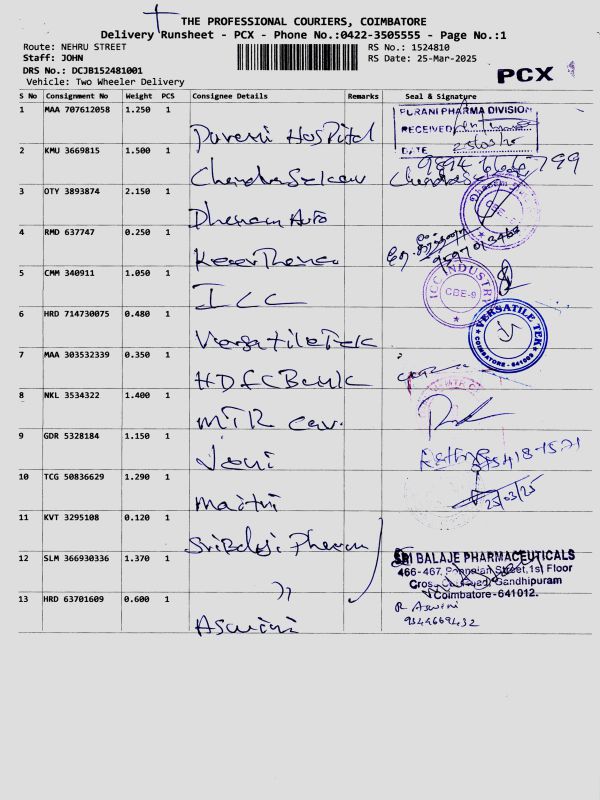 THE PROFESSIONAL COURIERS, COIMBATORE
Delivery Runsheet - PCX - Phone No.:0422-3505555 - Page No.:1
Route: NEHRU STREET
RS No.: 1524810
Staff: JOHN
RS Date: 25-Mar-2025
DRS No.: DCJB152481001
Vehicle: Two Wheeler Delivery
PCX
S No Consignment No Weight PCS Consignee Details Remarks Seal & Signature
1 MAA 707612058 1.250 1 Hospital
PURANI PHARMA DIVISION
RECEIVED
DATE 25/03/25
2 KMU 3669815 1.500 1
3 OTY 3893874 2.150 1 Auto
4 RMD 637747 0.250 1
5 CMM 340911 1.050 1 ICC
ICC INDUSTRY
CBE-9
6 HRD 714730075 0.480 1 Versatile Tek
VERSATILE TEK
COIMBATORE - 641009
7 MAA 303532339 0.350 1 HDFC Bank
8 NKL 3534322 1.400 1 MTR
9 GDR 5328184 1.150 1
10 TCG 50836629 1.290 1
25/03/25
11 KVT 3295108 0.120 1 Sri Balaji
12 SLM 366930336 1.370 1 "
SRI BALAJE PHARMACEUTICALS
466-467, Street, 1st Floor
Gandhipuram
Coimbatore-641012.
13 HRD 63701609 0.600 1 Aswini
R Aswini